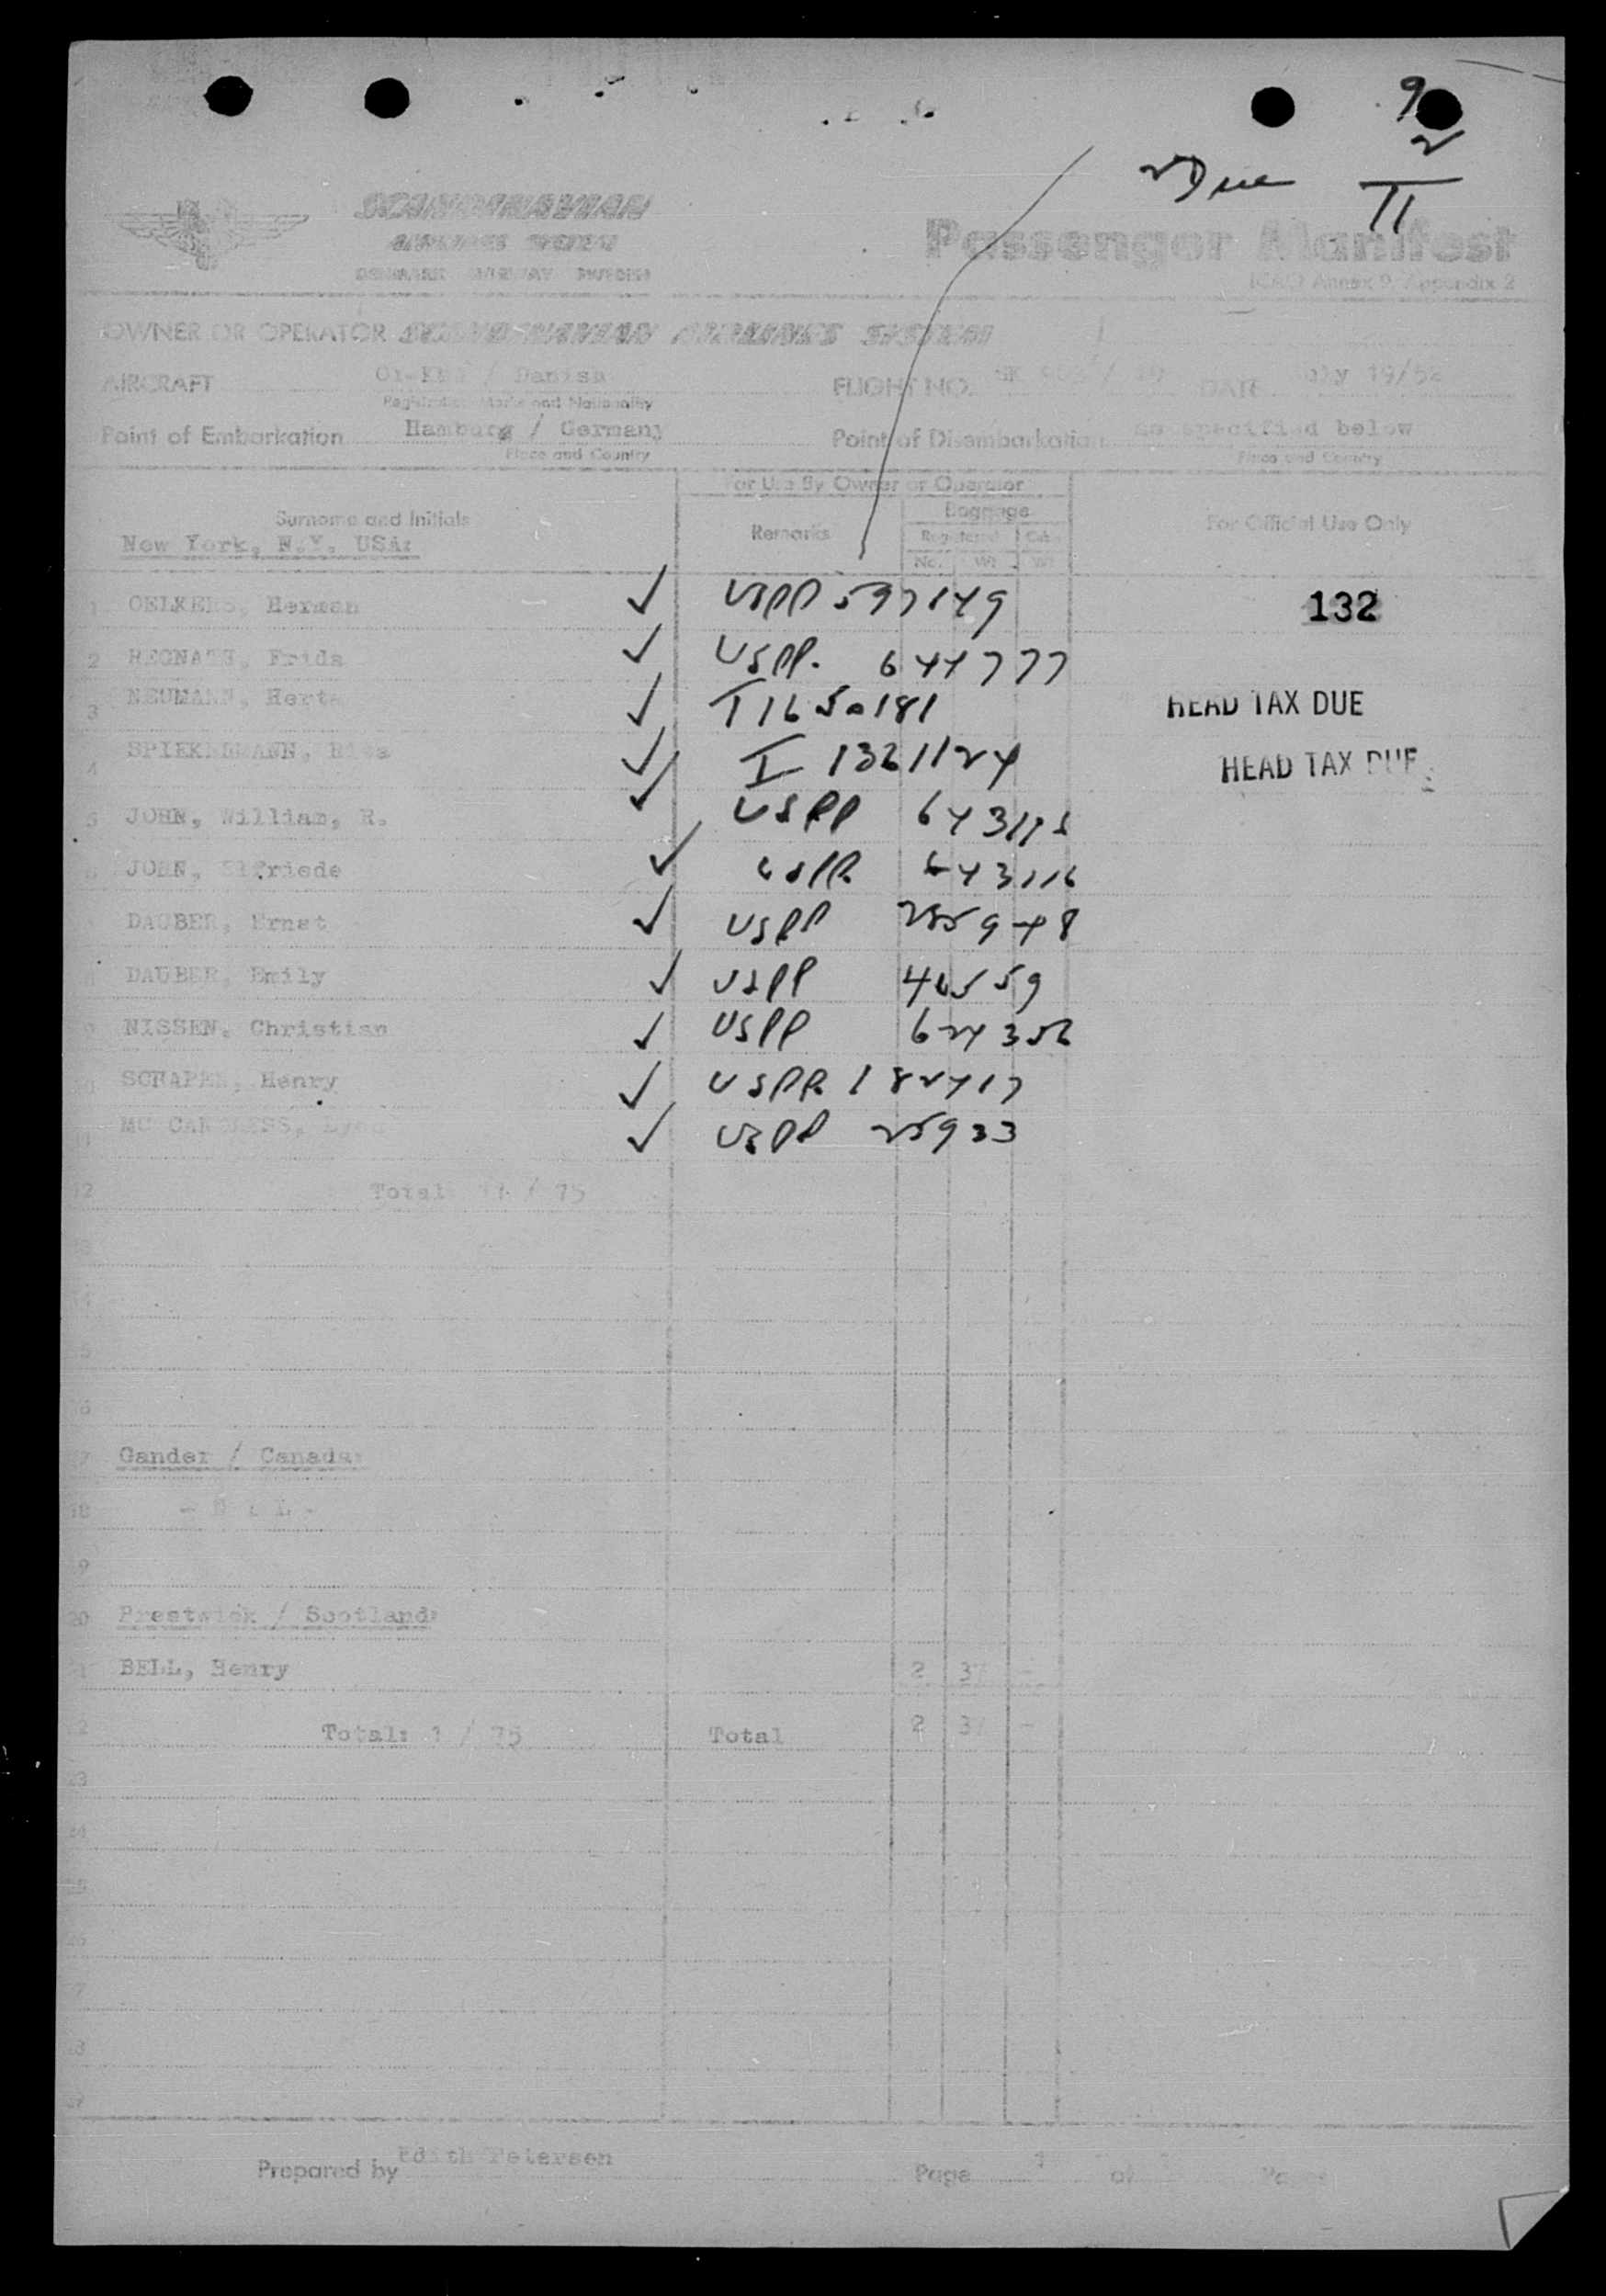 9
2
2 Due 11
SCANDINAVIAN
AIRLINES SYSTEM
DENMARK NORWAY SWEDEN
Passenger Manifest
ICAO Annex 9, Appendix 2
OWNER OR OPERATOR SCANDINAVIAN AIRLINES SYSTEM
AIRCRAFT / Danish FLIGHT NO. SK DATE July 19/52
Registration Marks and Nationality
Point of Embarkation Hamburg / Germany Point of Disembarkation as specified below
Place and Country Place and Country
For Use By Owner or Operator
Surname and Initials Remarks Baggage For Official Use Only
Registered Cabin
New York, N.Y. USA:
No. Wt Wt
1 OELKERS, Herman USPP 597149 132
2 REGNATH, Frida USPP. 644777
3 NEUMANN, Herta I 1650181 HEAD TAX DUE
4 SPIEKERMANN, I 1321124 HEAD TAX DUE
5 JOHN, William, R. USPP 643115
6 JOHN, Elfriede USPP 643116
DAUBER, Ernst USPP 285948
DAUBER, Emily USPP 40559
9 NISSEN, Christian USPP 624356
10 SCHAPER, Henry USPP 182417
11 MC CANDLESS, USPP 25933
12 Total 11 / 75
14
15
16
17 Gander / Canada:
18 - N I L -
19
20 Prestwick / Scotland:
BELL, Henry 2 37 -
Total: 1 / 75 Total 2 37 -
23
24
25
26
Prepared by Edith Petersen Page 1 of Pages